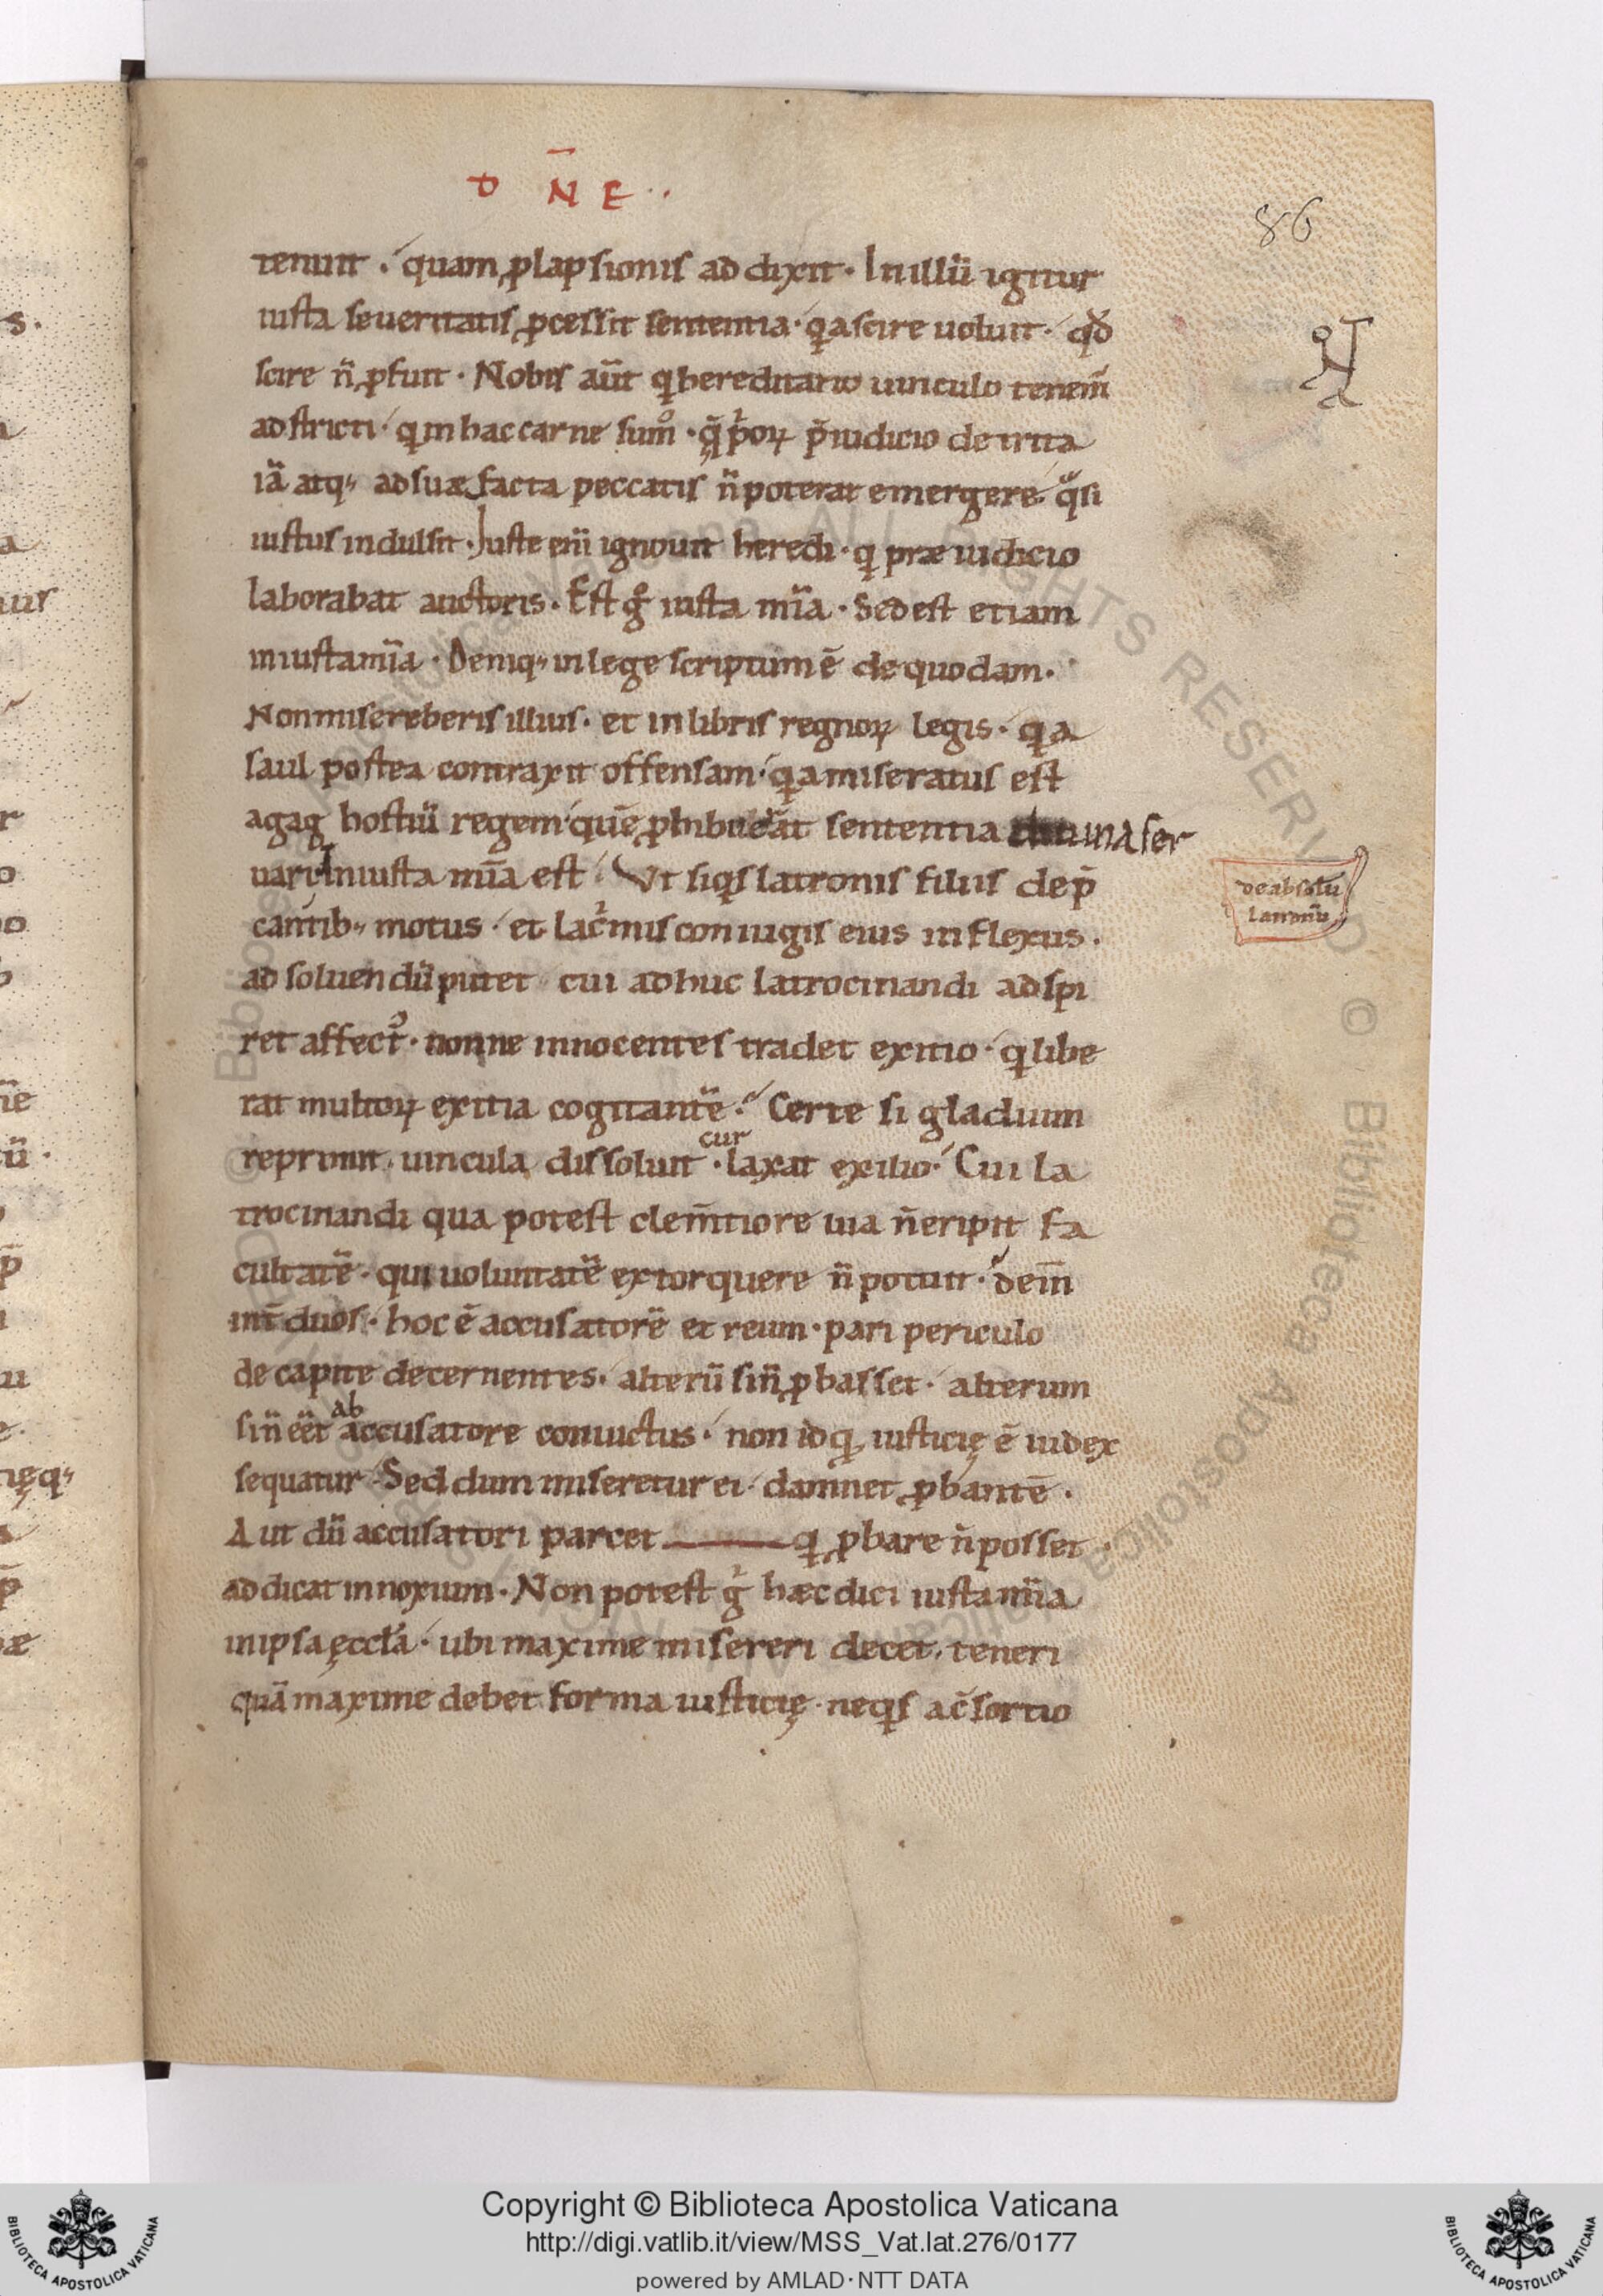 D N̄ E..
86
tenuit ·́ quam ꝓlapsionis addixit · In illū igitur
iusta seueritatis ꝓcessit sententia · quia scire uoluit · qđ
scire n̄ ꝓfuit · Nobis aūt qui hereditario uinculo tenem̄
adstricti · qui in hac carne sumꝰ · q̨̄ p̄orꝝ p̄iudicio detrita
iā atq; ad suæ facta peccatis n̄ poterat emergere · q̄si
iustus indulsit · Iuste eni̅ ignouit heredi · qui præiudicio
laborabat auctoris · Est gͦ iusta mīa · Sed est etiam
iniusta mīa · Deniq; in lege scriptum ē de quodam ·
Non misereberis illius · et in libris regnorꝝ legis · quia
saul postea contraxit offensam · quia miseratus est
agag hostiū regem · quē ꝓhibuerat sententia diuina ser
uari · Iniusta mīa est · Vt si qis latronis filiis dep̄
cantib; motus · et lacrimis coniugis eius inflexus ·
adsoluendū putet cui adhuc latrocinandi adspi
ret affectꝰ · nonne innocentes tradet exitio · qui libe
rat multorꝝ exitia cogitantē · Certe si gladium
reprimit · uincula dissoluit · cur laxat exilio · Cui la
trocinandi qua potest clem̄tiore uia n̄ eripit fa
cultatē · qui uoluntatē extorquere n̄ potuit · dem̄
int̄ duos · hoc ē accusatorē et reum · pari periculo
de capite decernentes · alterū si n̄ ꝓbasset · alterum
si n̄ eēt ab accusatore conuictus · non id qđ iusticię ē iudex
sequatur · Sed dum miseretur ei · damnet ꝓbantē ·
Aut dū accusatori parcet qui ꝓbare n̄ posset ·
addicat innoxium · Non potest g̍ hæc dici iusta mīa
in ipsa ęccła · ubi maxime misereri decet · teneri
quā maxime debet forma iusticię · neqis a c̄sortio
de absolu
Copyright © Biblioteca Apostolica Vaticana
http://digi.vatlib.it/view/MSS_Vat.lat.276/0177
powered by AMLAD·NTT DATA
BIBLIOTECA APOSTOLICA VATICANA
BIBLIOTECA APOSTOLICA VATICANA